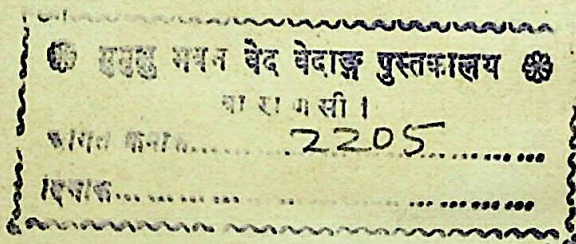 ❀ मुमुक्षु भवन वेद वेदाङ्ग पुस्तकालय ❀
वाराणसी।
आगत क्रमांक......2205......
दिनांक......